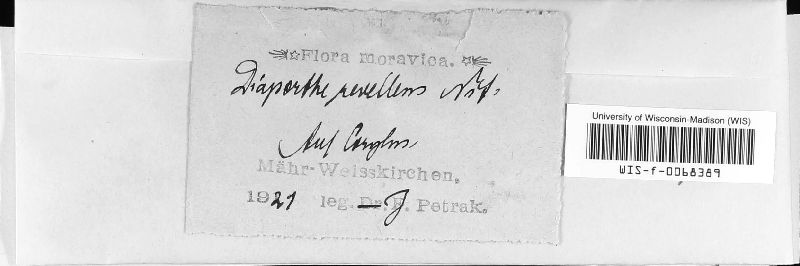 Flora moravica.
Diaporthe revellens Nit.
Auf Corylus
Mähr-Weisskirchen.
1921 leg. Dr. F. Petrak.
University of Wisconsin-Madison (WIS)
WIS-f-0068389